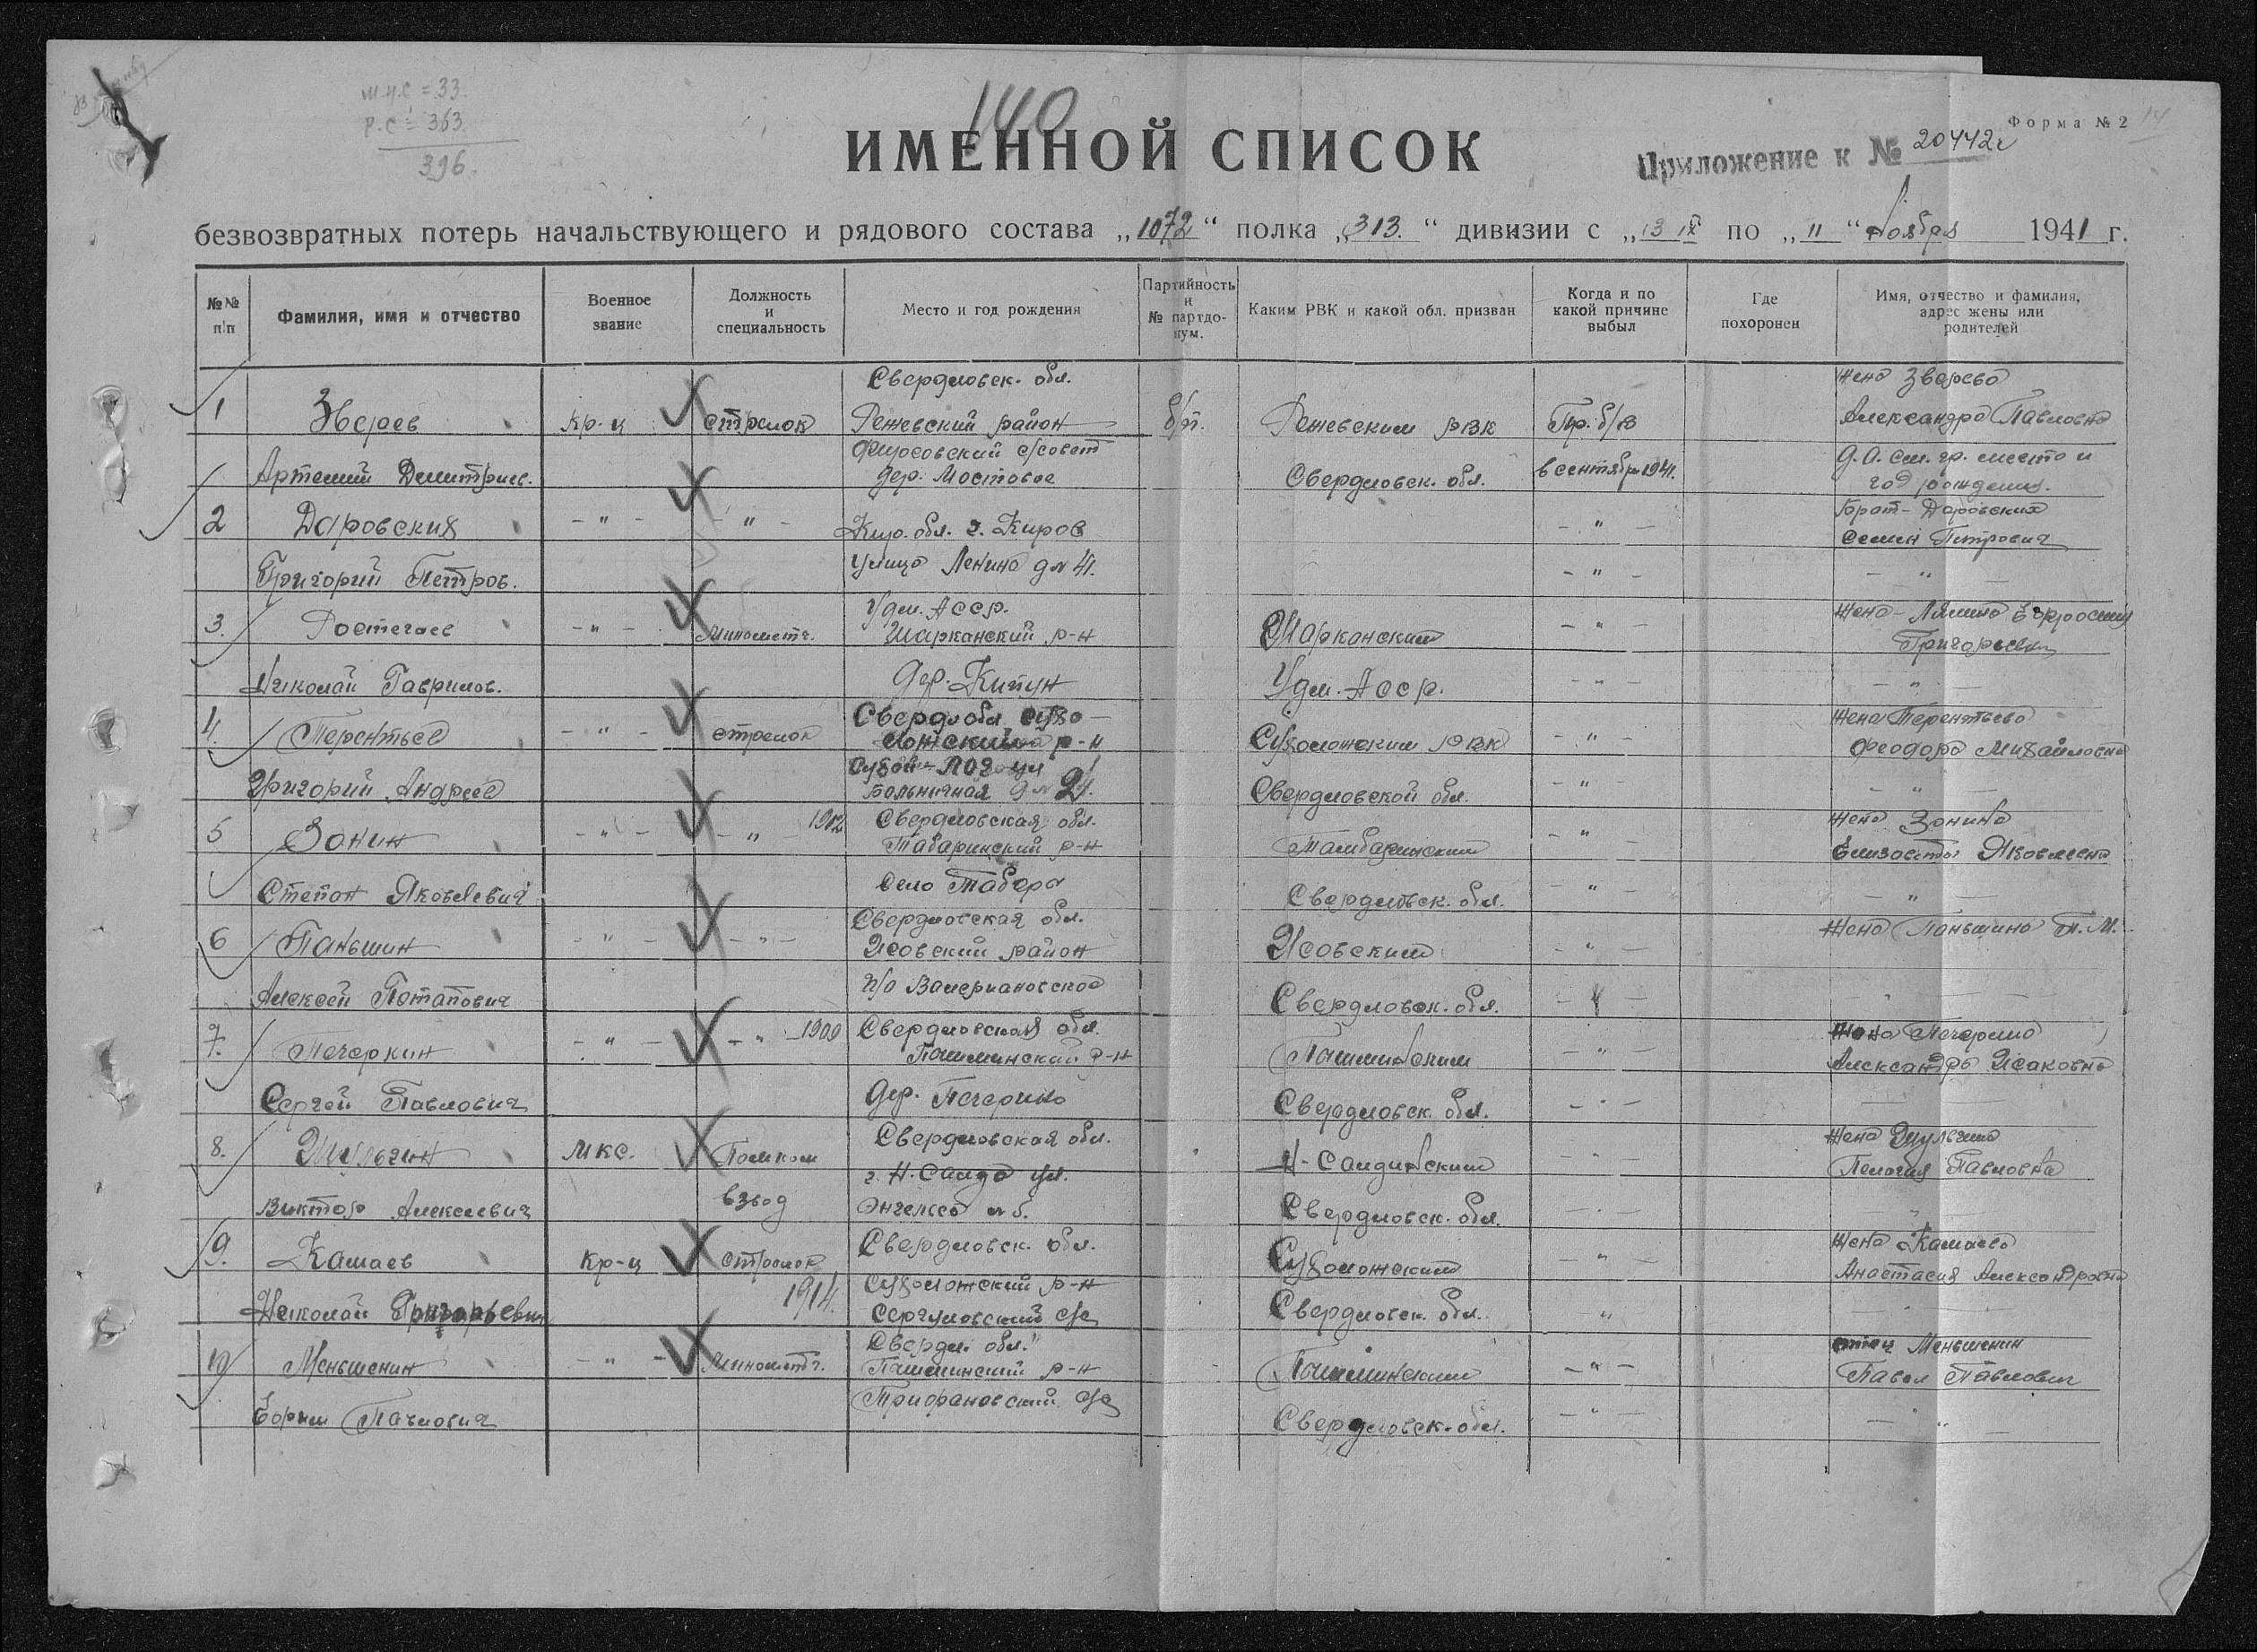 м.н.с = 33.
р.с = 363
396.
140
Форма № 2
14
ИМЕННОЙ СПИСОК
Приложение к № 20442с
безвозвратных потерь начальствующего и рядового состава „1072“ полка „313.“ дивизии с „13 IX по „11“ Ноября 1941 г.
№№ п/п
Фамилия, имя и отчество
Военное звание
Должность и специальность
Место и год рождения
Партийность и № партдокум.
Каким РВК и какой обл. призван
Когда и по какой причине выбыл
Где похоронен
Имя, отчество и фамилия, адрес жены или родителей
Свердловск. обл. Жена Зверева
1 Зверев кр-ц стрелок Режевский район б/п. Режевским РВК Пр. б/в Александра Павловна
Фирсовский с/совет
Артемий Дмитриев. дер. Мостовое Свердловск. обл. в сентябре 1941. Д.А. см. гр. место и
год рождения.
2 Даровских - " - - " - Кир. обл. г. Киров - " - брат - Даровских
Семен Петрович
Григорий Петров. улица Ленина д№41. - " - - " -
3. Ростегаев - " - миномётч. Удм. АССР. Шарканский р-н Шарканским - " - Жена -
Григорьевна
Николай Гаврилов. дер. Кипун Удм. АССР. - " - - " -
4. Терентьев - " - стрелок Сверд обл Сухо-
ложский р-н Сухоложским РВК - " - Жена Терентьева
Феодора Михайловна
Григорий Андреев Сухой-Лог ул
Больничная д№ 21. Свердловской обл. - " - - " -
5 Зонин - " - - " - 1902 Свердловская обл.
Табаринский р-н Тамбаринским - " - Жена Зонина
Елизавета Яковлевна
Степан Яковлевич село Таборы Свердловск. обл. - " - - " -
6 Паньшин - " - - " - Свердловская обл.
Исовский район Исовским - " - Жена Паньшина Т.М.
Алексей Потапович п/о Валериановское Свердловск. обл. - " -
7. Печеркин - " - - " - 1909 Свердловская обл.
Пышминский р-н Пышминским - " - Жена Печеркина
Александра Исаковна
Сергей Павлович дер. Печеркино Свердловск. обл. - " -
8. Шульгин мкс. Помком Свердловская обл.
г. Н. Салда ул. Н-Салдинским - " - Жена Шульгина
Пелагия Павловна
Виктор Алексеевич взвод Энгельса №5. Свердловск. обл.
9. Камаев кр-ц стрелок Свердловск. обл. Сухоложским - " - Жена Камаева
Анастасия Александровна
Николай Григорьевич 1914. Сухоложский р-н
Сергуловский с/с Свердловск. обл. "
10 Меньшенин - " - миномётч. Свердл. обл.
Пышминский р-н Пышминским - " - отец Меньшенин
Павел Павлович
Борис Павлович Трифановский с/с Свердловск. обл. - " - - " -